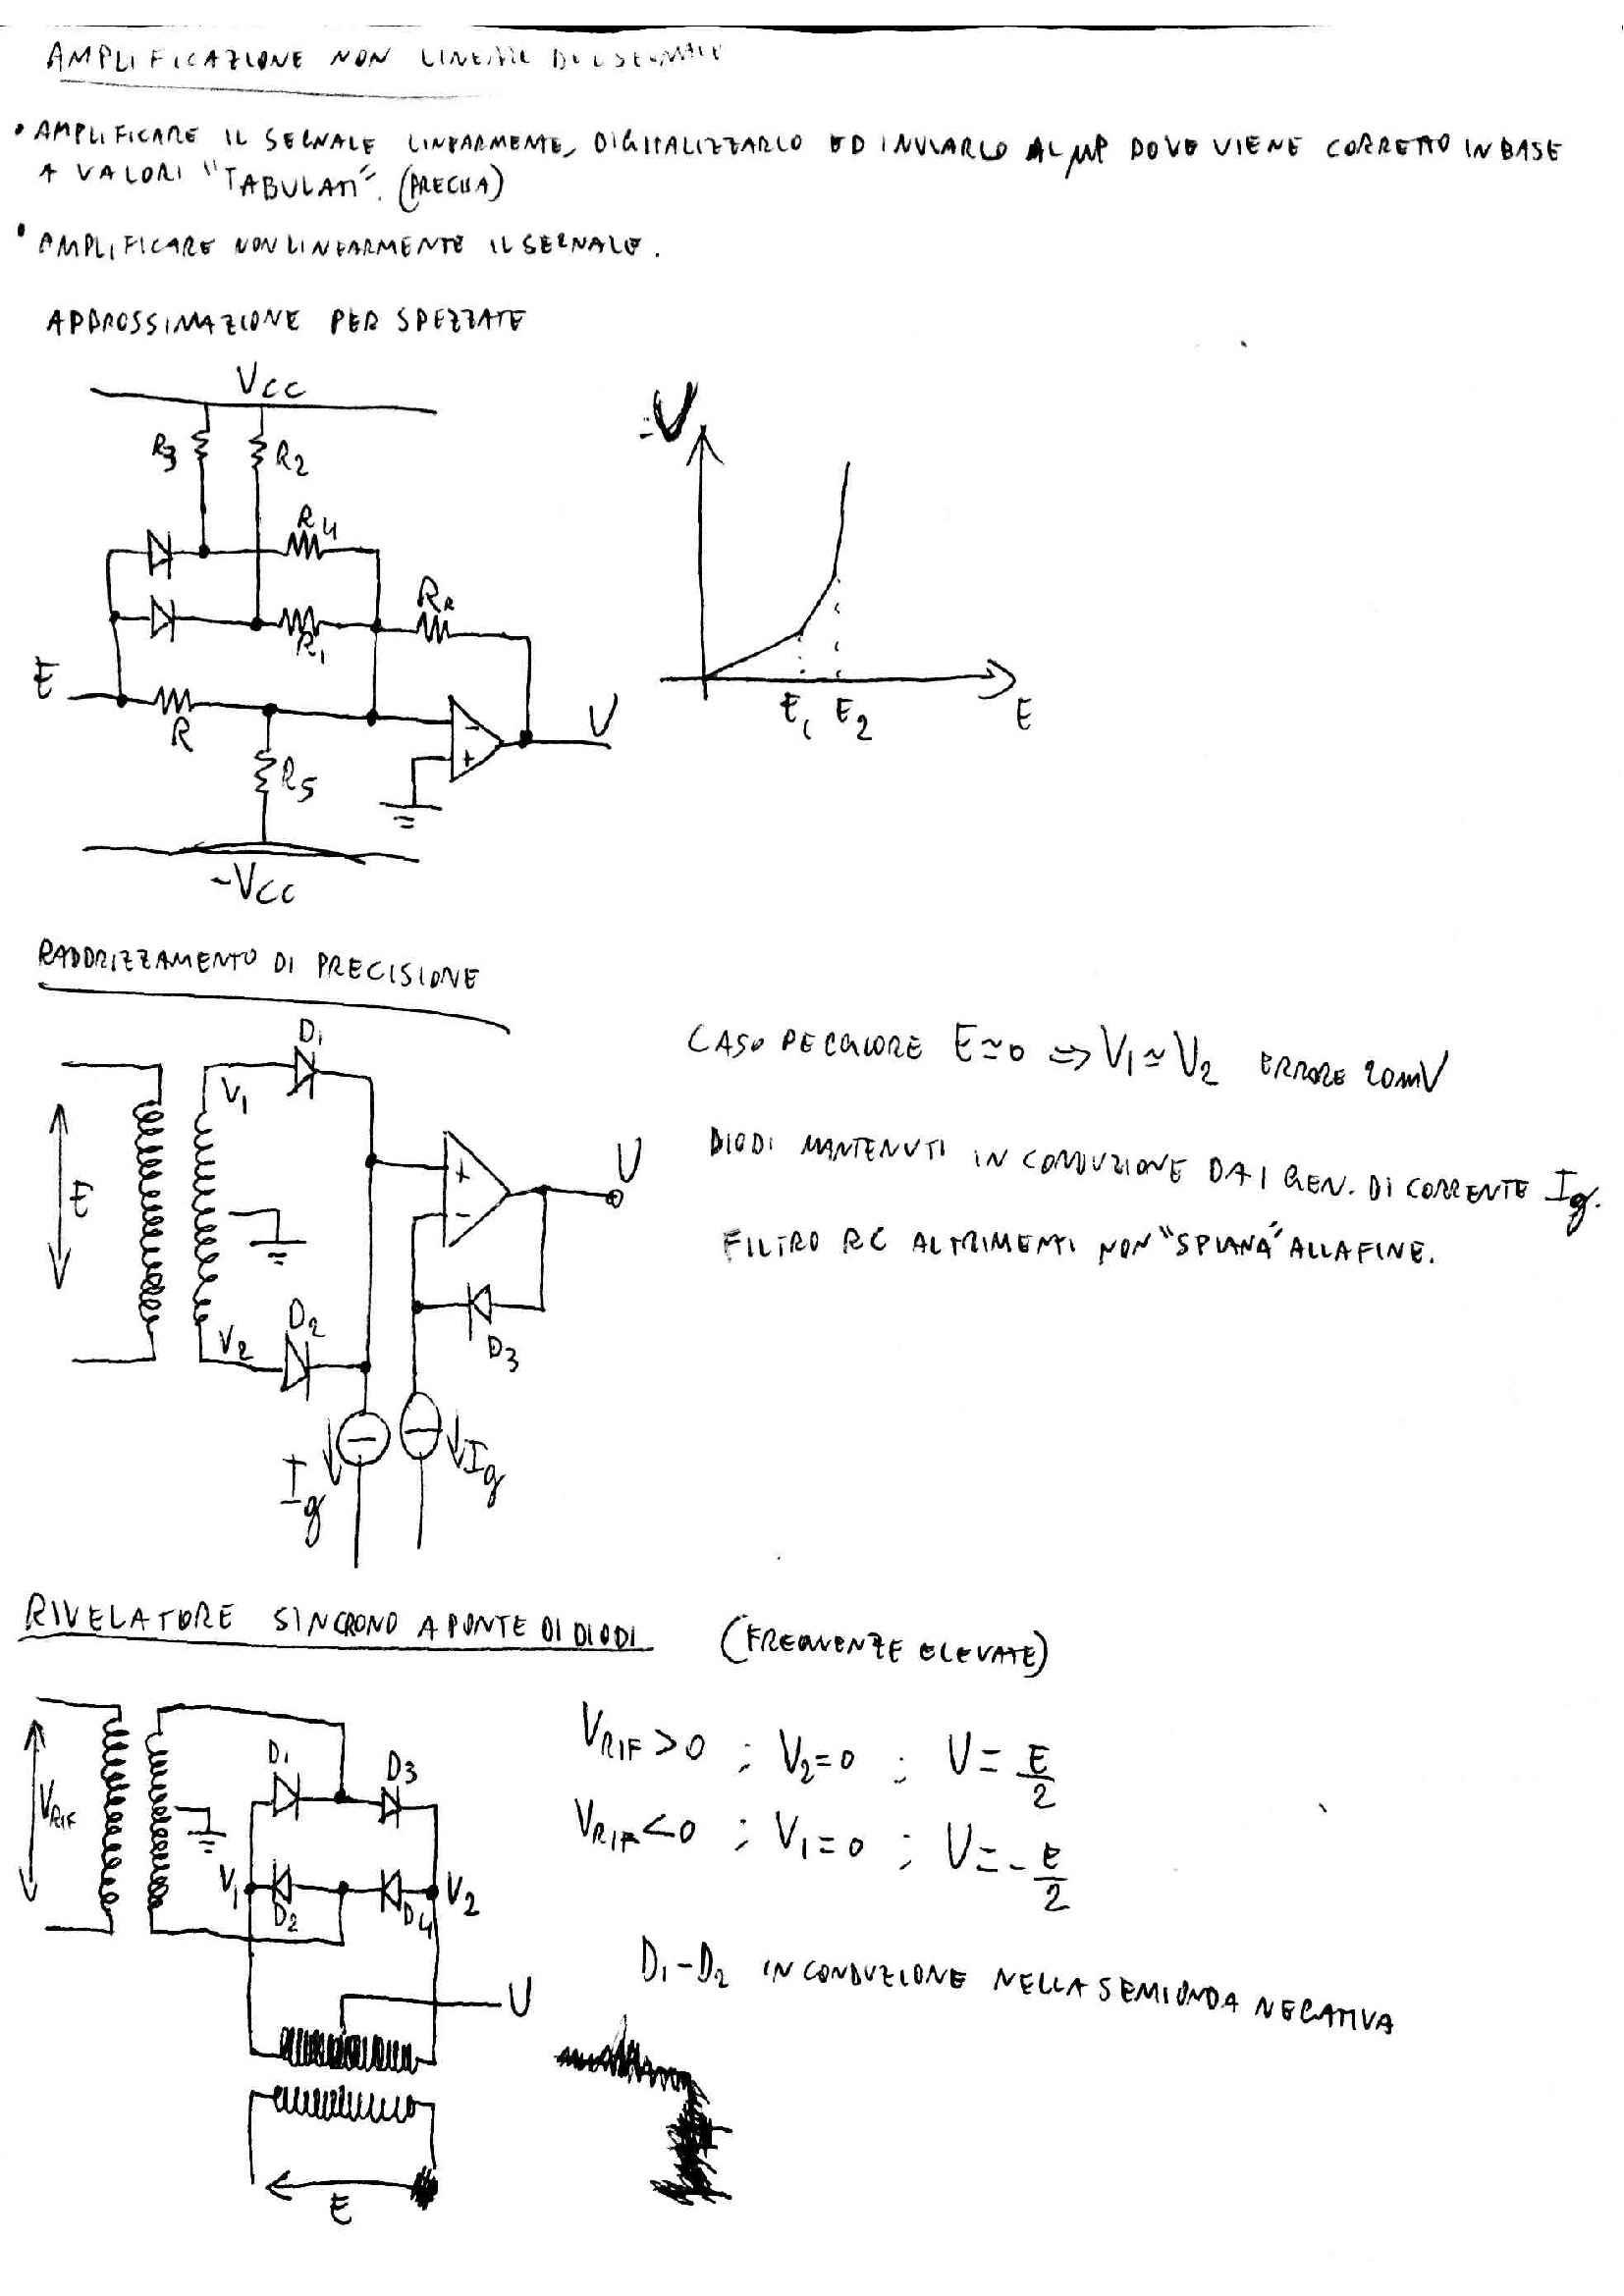 AMPLIFICAZIONE NON LINEARE DEL SEGNALE
• AMPLIFICARE IL SEGNALE LINEARMENTE, DIGITALIZZARLO ED INVIARLO AL μP DOVE VIENE CORRETTO IN BASE
A VALORI "TABULATI". (PRECISA)
• AMPLIFICARE NON LINEARMENTE IL SEGNALE.
APPROSSIMAZIONE PER SPEZZATE
VCC
R3
R2
R4
R1
RR
E
R
R5
V
-VCC
-V
E1 E2
E
RADDRIZZAMENTO DI PRECISIONE
D1
V1
E
V
D2
V2
D3
Ig
Ig
CASO PEGGIORE E≃0 ⇒ V1≃V2 ERRORE 20mV
DIODI MANTENUTI IN CONDUZIONE DAI GEN. DI CORRENTE Ig.
FILTRO RC ALTRIMENTI NON "SPIANA" ALLA FINE.
RIVELATORE SINCRONO A PONTE DI DIODI (FREQUENZE ELEVATE)
VRIF
D1
D3
V1
D2
D4
V2
V
E
VRIF>0 ; V2=0 ; V=E/2
VRIF<0 ; V1=0 ; V=-E/2
D1-D2 IN CONDUZIONE NELLA SEMIONDA NEGATIVA